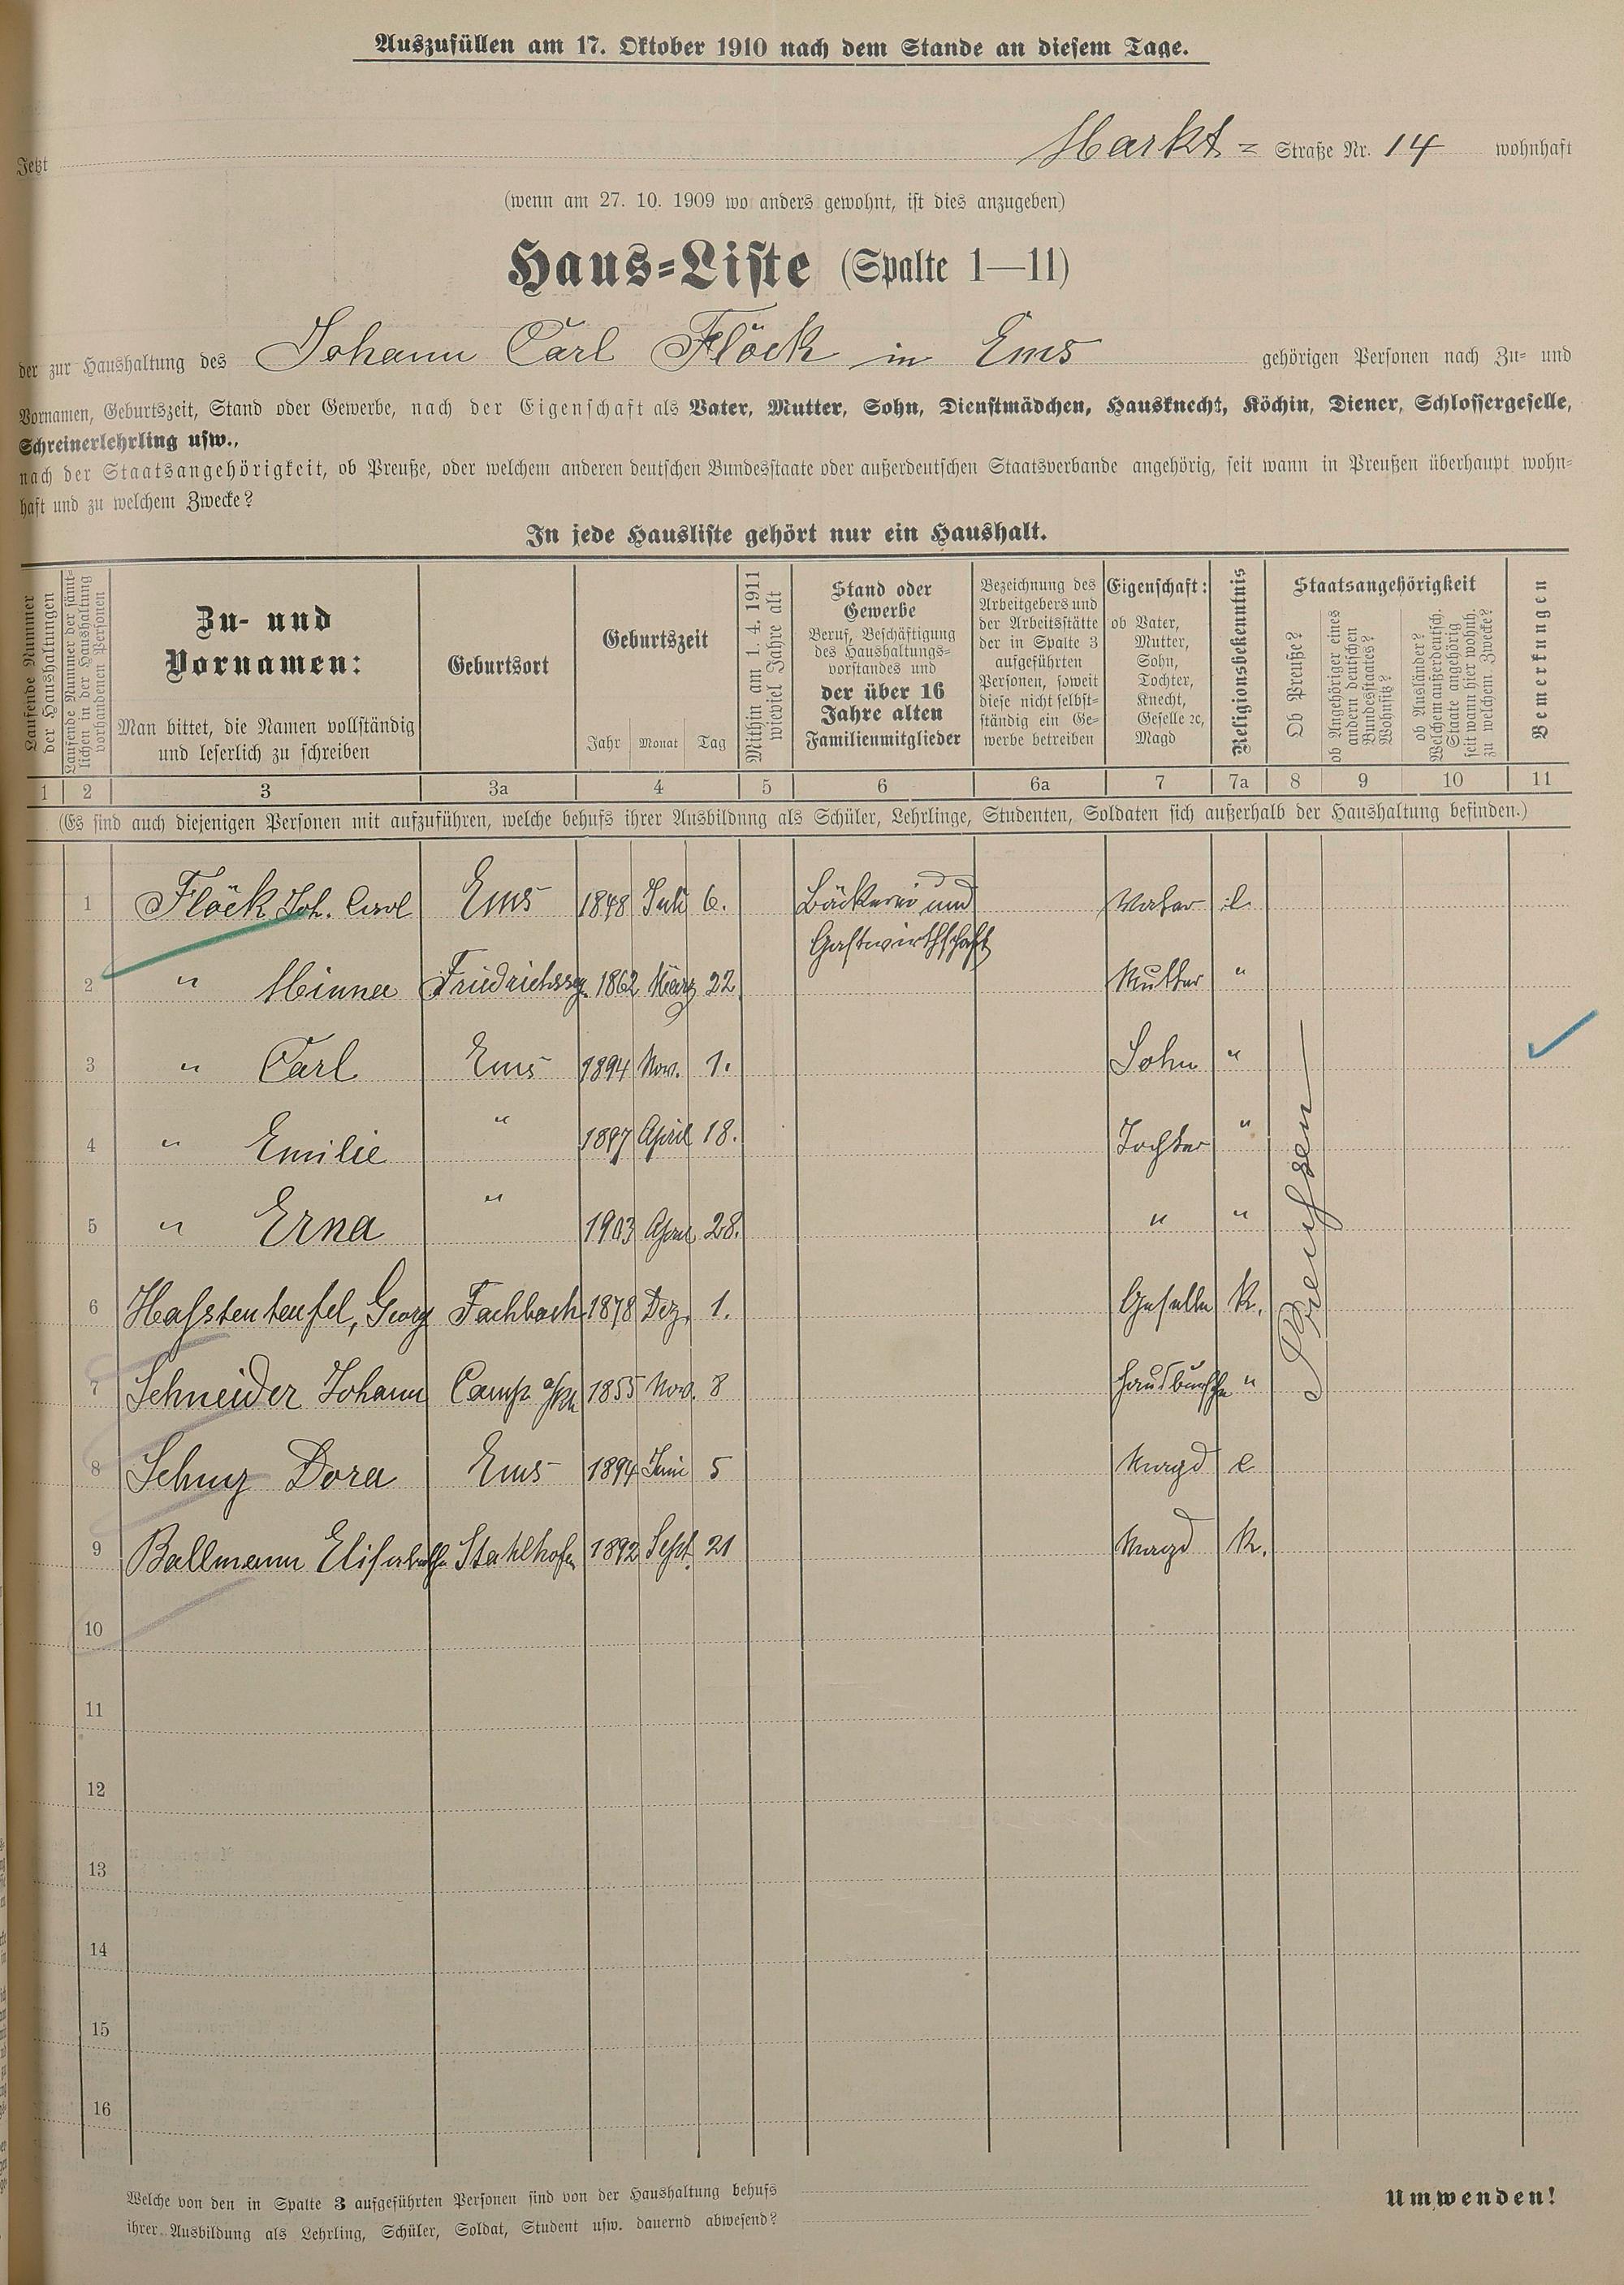 Auszufüllen am 17. Oktober 1910 nach dem Stande an diesem Tage.
Jetzt Markt = Straße Nr. 14 wohnhaft
(wenn am 27. 10. 1909 wo anders gewohnt, ist dies anzugeben)
Haus=Liste (Spalte 1—11)
der zur Haushaltung des Johann Carl Flöck in Ems gehörigen Personen nach Zu= und
Vornamen, Geburtszeit, Stand oder Gewerbe, nach der Eigenschaft als Vater, Mutter, Sohn, Dienstmädchen, Hausknecht, Köchin, Diener, Schlossergeselle,
Schreinerlehrling usw.,
nach der Staatsangehörigkeit, ob Preuße, oder welchem anderen deutschen Bundesstaate oder außerdeutschen Staatsverbande angehörig, seit wann in Preußen überhaupt wohn=
haft und zu welchem Zwecke?
In jede Hausliste gehört nur ein Haushalt.
Laufende Nummer
der Haushaltungen
Laufende Nummer der sämt=
lichen in der Haushaltung
vorhandenen Personen
Zu- und
Vornamen:
Man bittet, die Namen vollständig
und leserlich zu schreiben
Geburtsort
Geburtszeit
Jahr Monat Tag
Mithin am 1. 4. 1911
wieviel Jahre alt
Stand oder
Gewerbe
Beruf, Beschäftigung
des Haushaltungs=
vorstandes und
der über 16
Jahre alten
Familienmitglieder
Bezeichnung des
Arbeitgebers und
der Arbeitsstätte
der in Spalte 3
aufgeführten
Personen, soweit
diese nicht selbst=
ständig ein Ge=
werbe betreiben
Eigenschaft:
ob Vater,
Mutter,
Sohn,
Tochter,
Knecht,
Geselle ꝛc,
Magd
Religionsbekenntnis
Staatsangehörigkeit
Ob Preuße?
ob Angehöriger eines
andern deutschen
Bundesstaates?
Wohnsitz?
ob Ausländer?
Welchem außerdeutsch.
Staate angehörig
seit wann hier wohnh.
zu welchem Zwecke?
Bemerkungen
1 2 3 3a 4 5 6 6a 7 7a 8 9 10 11
(Es sind auch diejenigen Personen mit aufzuführen, welche behufs ihrer Ausbildung als Schüler, Lehrlinge, Studenten, Soldaten sich außerhalb der Haushaltung befinden.)
1 Flöck Joh. Carl Ems 1848 Juli 6. Bäckerei und Vater e.
Gastwirthschaft
2 " Minna 1862 März 22 Mutter "
3 " Carl Ems 1894 Nov. 1. Sohn "
4 " Emilie " 1897 April 18. Tochter "
5 " Erna " 1903 April 28. " "
6 Hafstenteufel, Georg Fachbach 1878 Dez. 1. Geselle K.
7 Schneider Johann Camp a/Rh 1855 Nov. 8 Hausbursche "
8 Dora Ems 1894 Juni 5 Magd e
9 Ballmann Elisabeth Stahlhofen 1892 Sept. 21 Magd K.
Preußen
10
11
12
13
14
15
16
Welche von den in Spalte 3 aufgeführten Personen sind von der Haushaltung behufs
ihrer Ausbildung als Lehrling, Schüler, Soldat, Student usw. dauernd abwesend?
Umwenden!